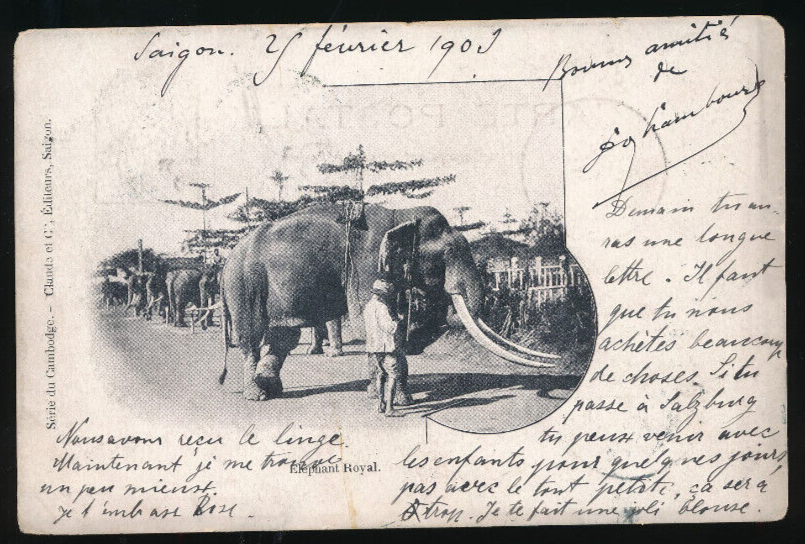 Saigon. 25 février 1903
Bonnes amitiés
de
Demain tu au-
ras une longue
lettre. Il faut
que tu nous
achètes beaucoup
de choses. Si tu
passe à Salzburg
tu peux venir avec
les enfants pour quelques jours,
pas avec le tout petite, ça sera
trop. Je te fait une joli blouse.
Nous avons reçu le linge.
Maintenant je me trouve
un peu mieux.
Je t'embrasse Rose.
Eléphant Royal.
Série du Cambodge. – Claude et Cie, Éditeurs, Saigon.
CARTE POSTALE